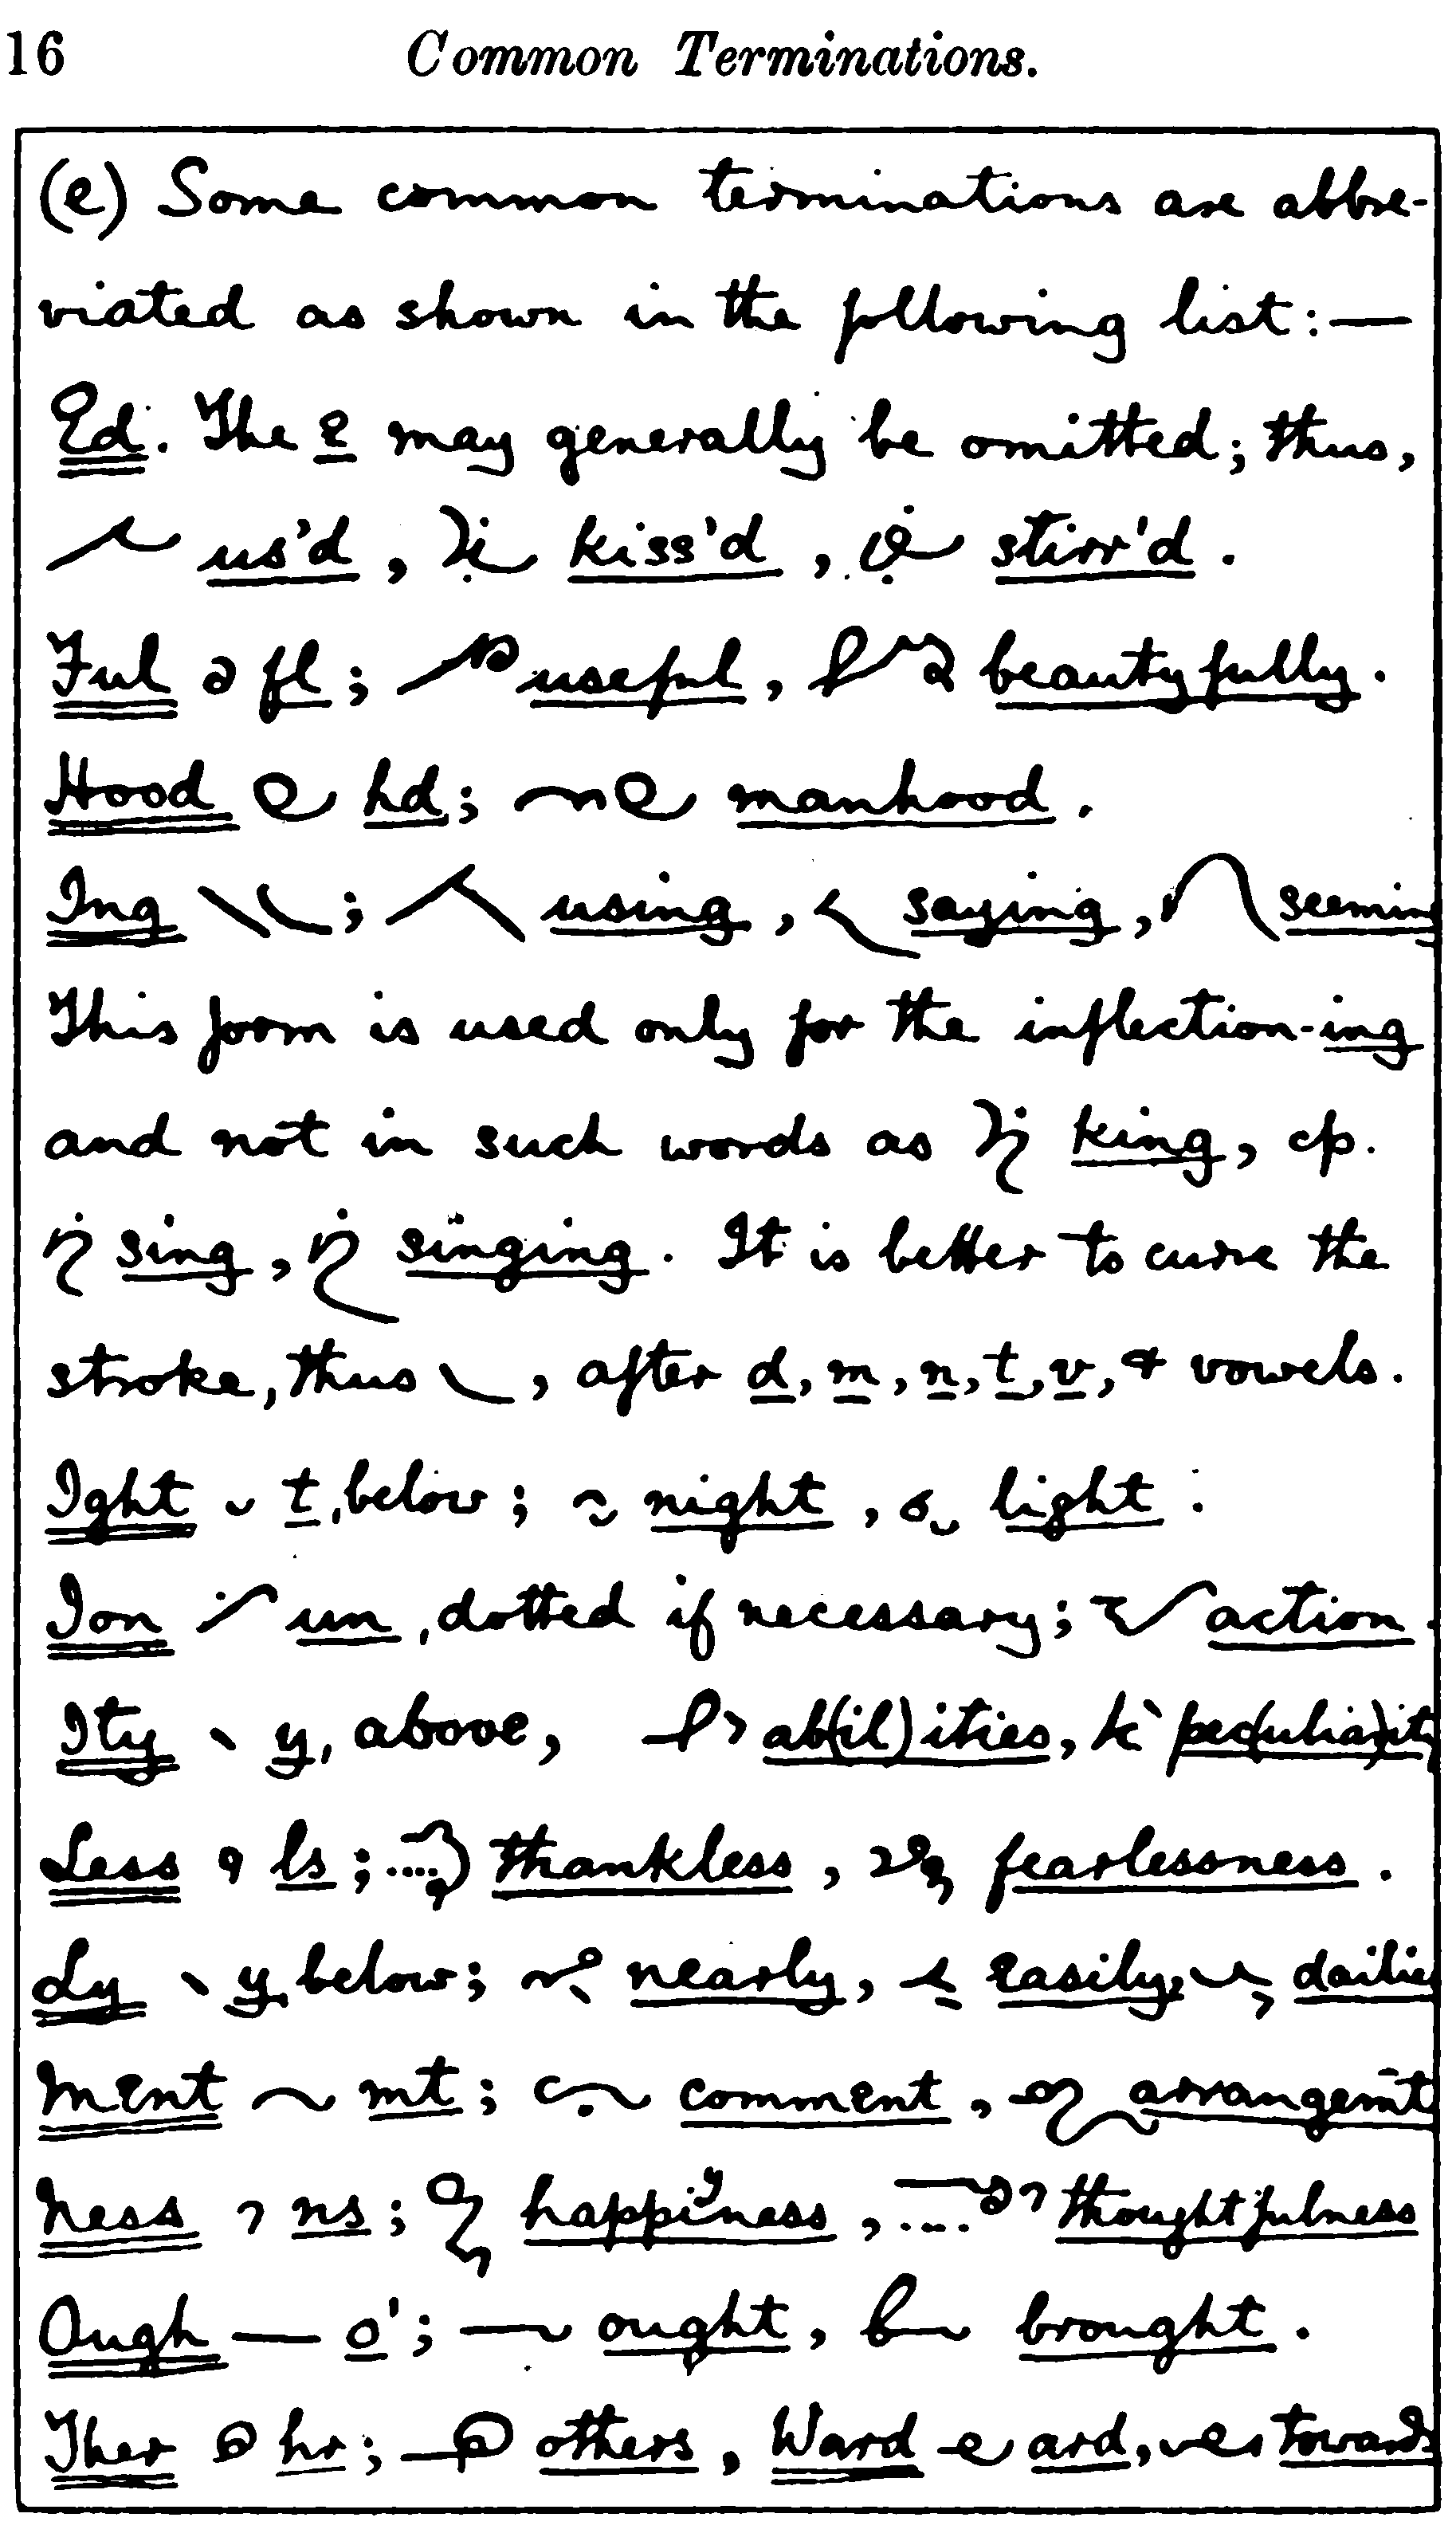 16 Common Terminations.
(e) Some common terminations are abbre-
viated as shown in the following list:—
Ed. The e may generally be omitted; thus,
us'd, kiss'd, stirr'd.
Ful fl; useful, beautyfully.
Hood hd; manhood.
Ing ; using, saying, seeming
This form is used only for the inflection -ing
and not in such words as king, cp.
sing, singing. It is better to curve the
stroke, thus , after d, m, n, t, v, & vowels.
Ight t, below; night, light.
Ion un, dotted if necessary; action.
Ity y, above, ab(il)ities, pec(uliar)ity
Less ls; thankless, fearlessness.
Ly y, below; nearly, easily, dailies
Ment mt; comment, arrangemt
Ness ns; happiyness, thoughtfulness
Ough — o'; ought, brought.
Ther hr; others, Ward ard, towards